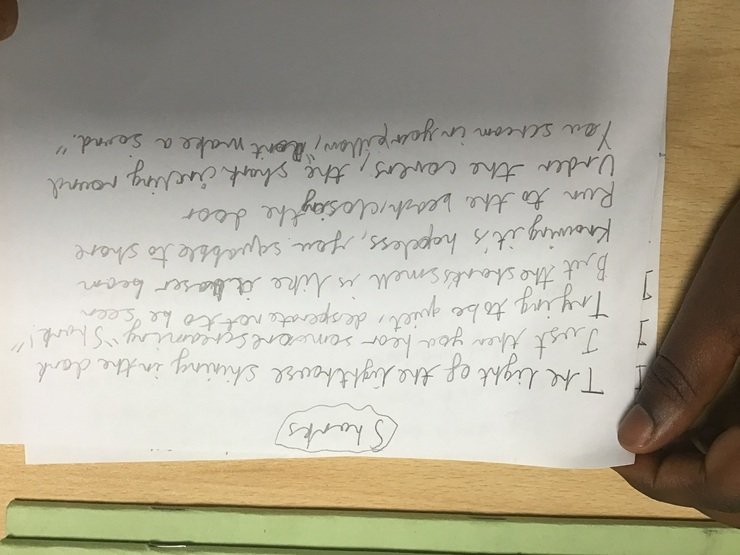 Sharks
The light of the lighthouse shining in the dark
Just then you hear someone screaming "Shark!"
Trying to be quiet, desperate not to be seen
But the sharks smell is like a laser beam
Knowing it's hopeless, you squabble to shore
Run to the beach, closing the door
Under the covers, the shark circling round
You scream in your pillow, "Don't make a sound."